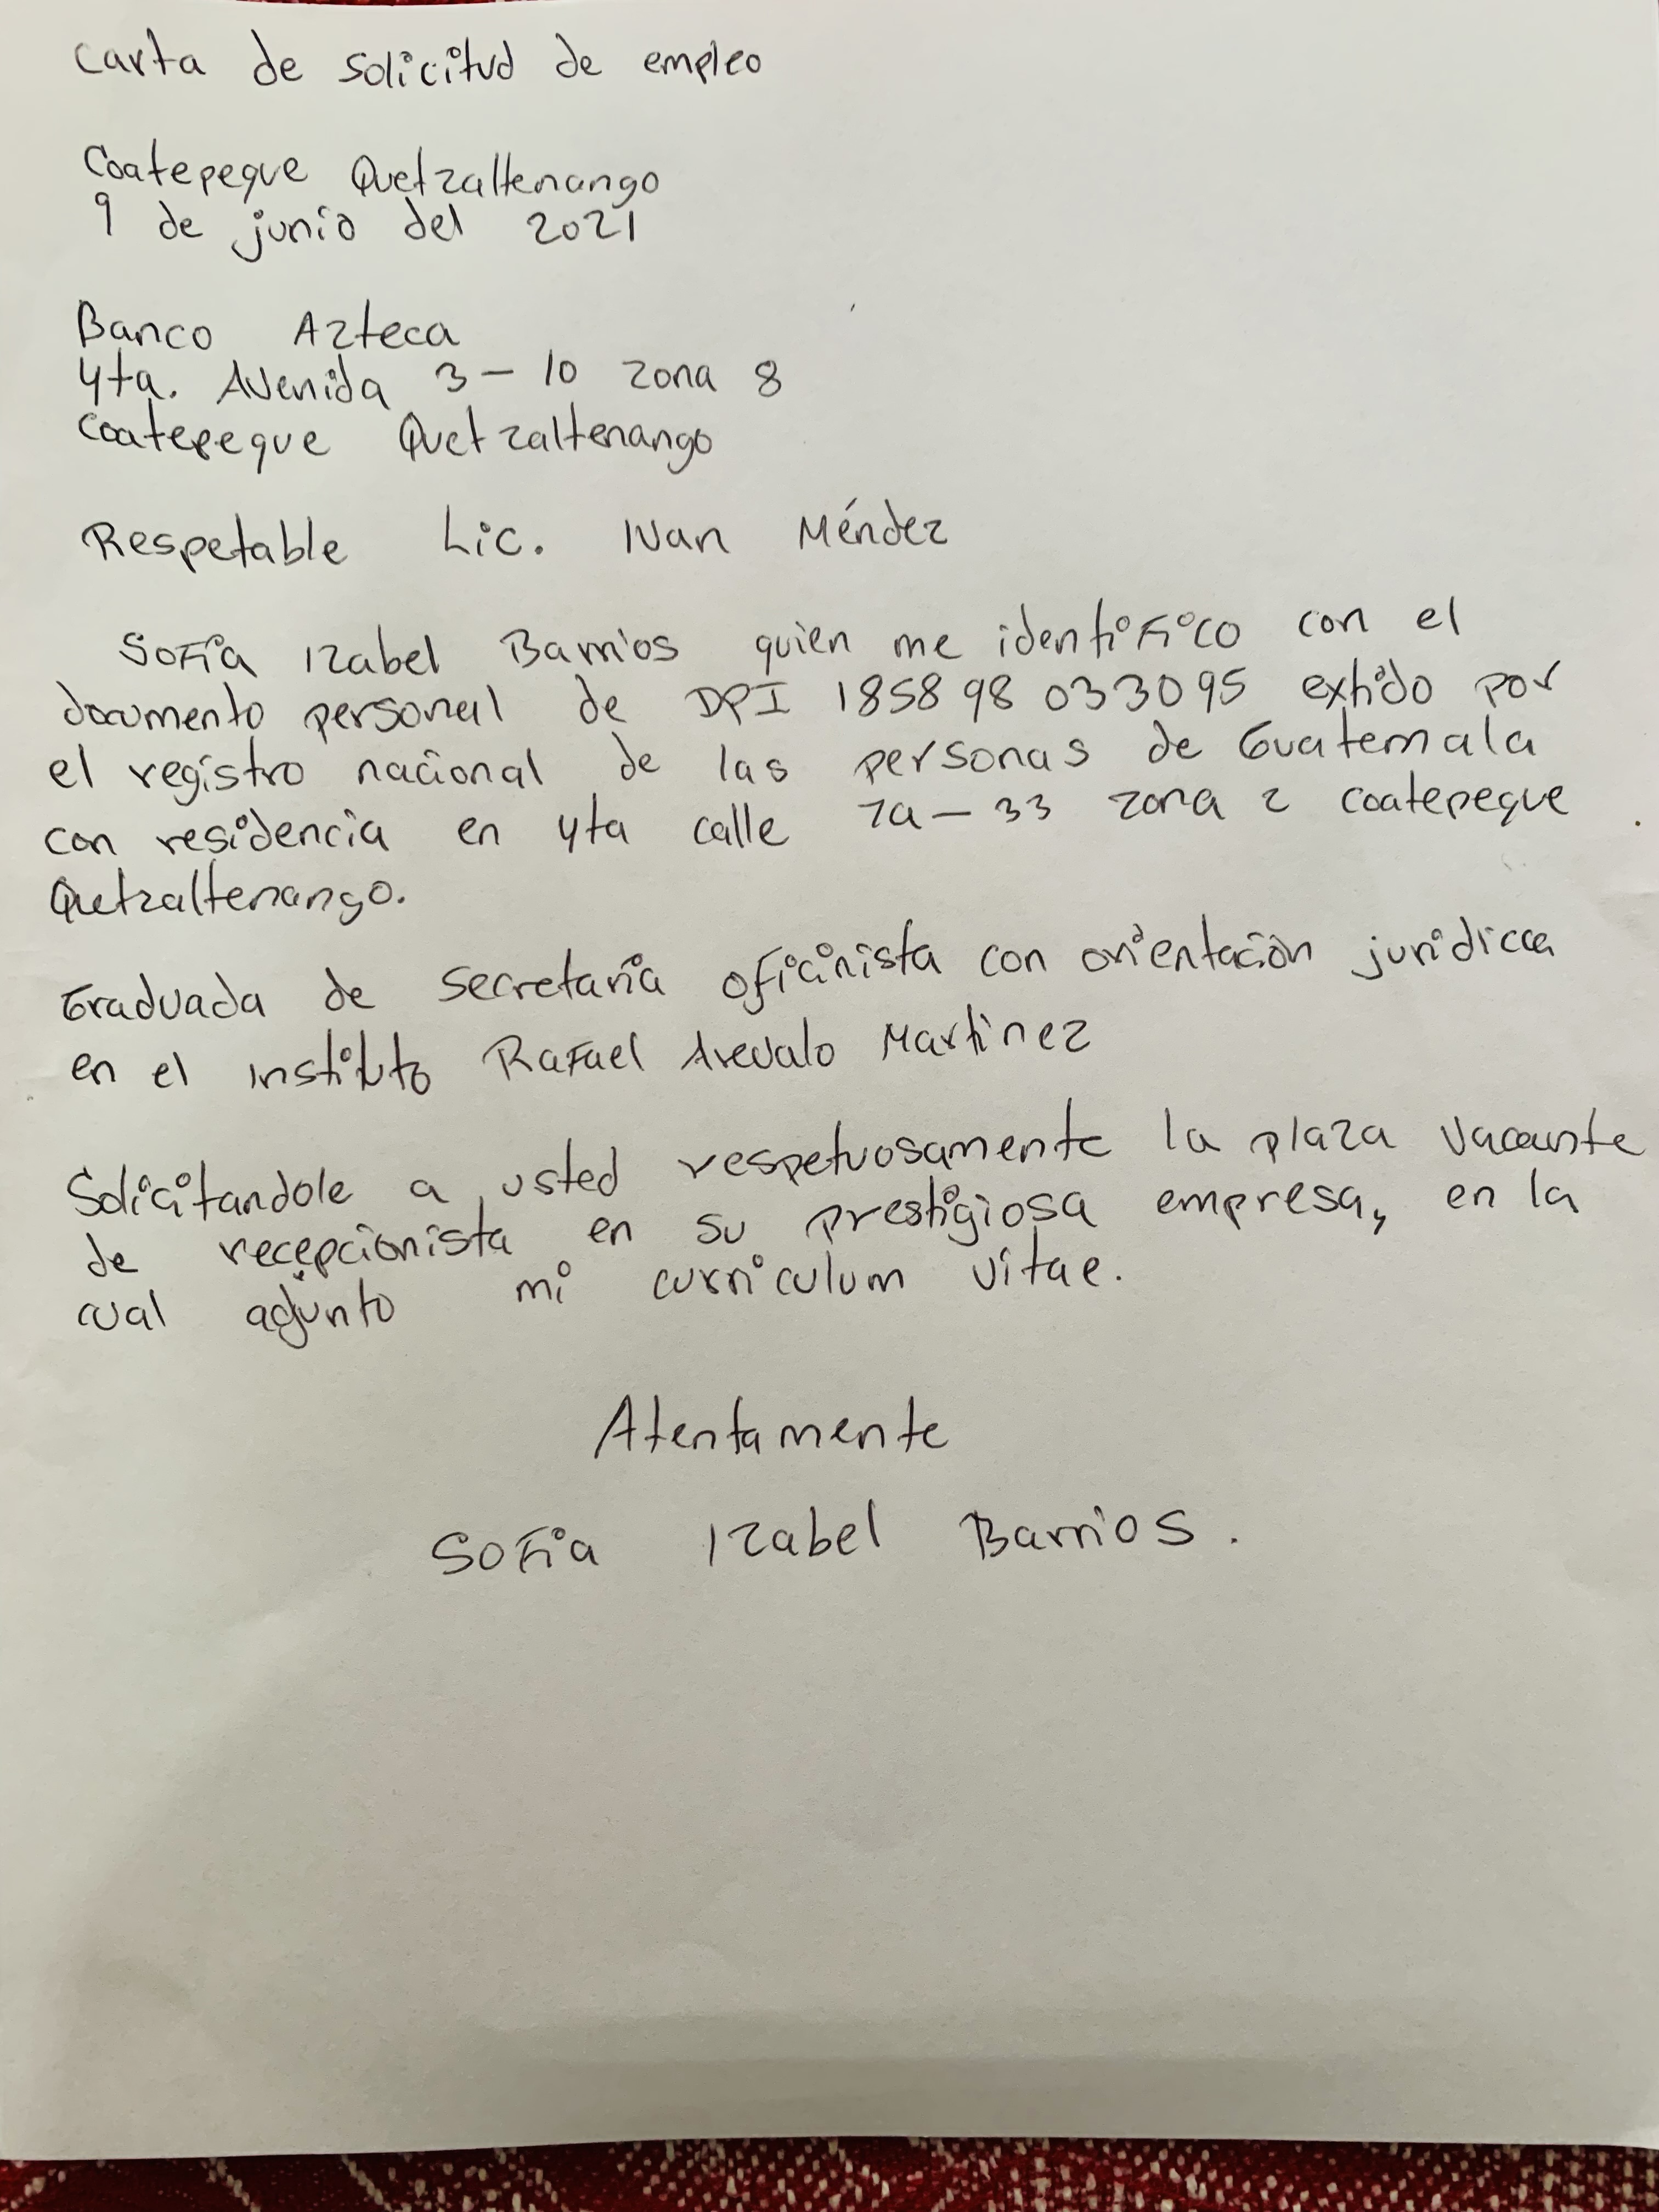 Carta de solicitud de empleo
Coatepeque Quetzaltenango
9 de junio del 2021
Banco Azteca
4ta. Avenida 3-10 zona 8
Coatepeque Quetzaltenango
Respetable Lic. Ivan Méndez
Sofia Izabel Barrios quien me identifico con el
documento personal de DPI 1858 98 033095 extido por
el registro nacional de las personas de Guatemala
con residencia en 4ta calle 7a-33 zona 2 coatepeque
Quetzaltenango.
Graduada de secretaria oficinista con orientación juridica
en el instituto Rafael Arevalo Martinez
Solicitandole a usted respetuosamente la plaza vacante
de recepcionista en su prestigiosa empresa, en la
cual adjunto mi curriculum vitae.
Atentamente
Sofia Izabel Barrios.